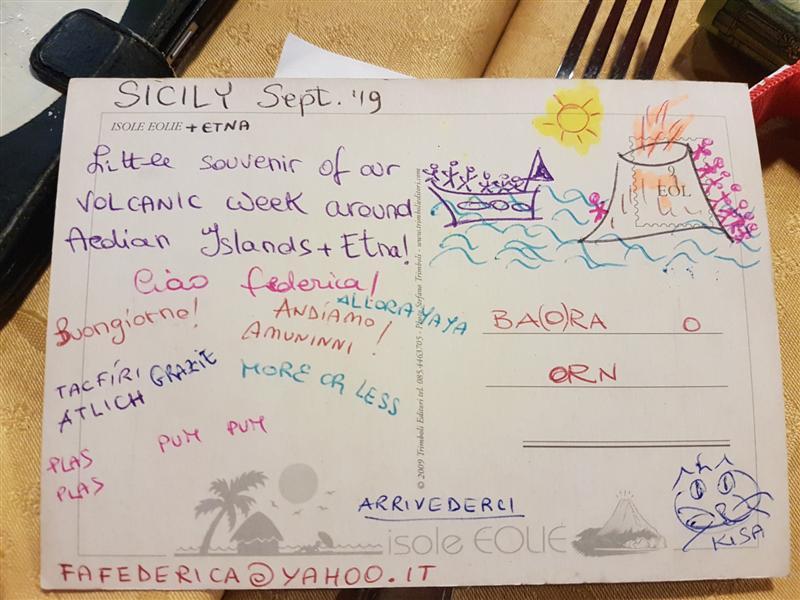 SICILY Sept. '19
ISOLE EOLIE + ETNA
Little souvenir of our
VOLCANIC week around
Aedian Islands + Etna!
Ciao federica!
Buongiorno!
ANDIAMO!
ALLORA YAYA
AMUNINNI!
TACFIRI GRAZIE
ATLICH
MORE OR LESS
PUM PUM
PLAS
PLAS
ARRIVEDERCI
isole EOLIE
FAFEDERICA@YAHOO.IT
© 2009 Trimboli Editori tel. 085.4463705 - www.trimbolieditori.com
9
EOL
BA(O)RA O
ORN
KISA